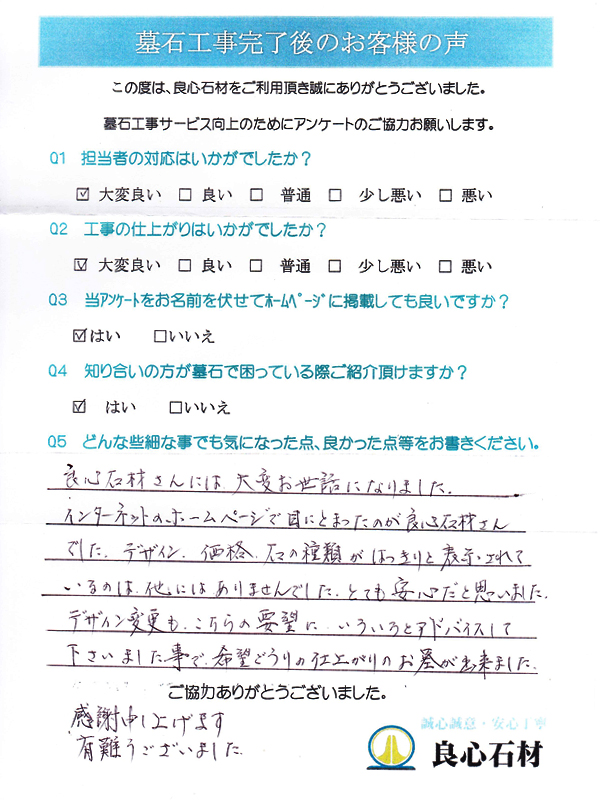 墓石工事完了後のお客様の声
この度は、良心石材をご利用頂き誠にありがとうございました。
墓石工事サービス向上のためにアンケートのご協力お願いします。
Q1 担当者の対応はいかがでしたか?
☑ 大変良い □ 良い □ 普通 □ 少し悪い □ 悪い
Q2 工事の仕上がりはいかがでしたか?
☑ 大変良い □ 良い □ 普通 □ 少し悪い □ 悪い
Q3 当ｱﾝｹｰﾄをお名前を伏せてﾎｰﾑﾍﾟｰｼﾞに掲載しても良いですか?
☑はい □いいえ
Q4 知り合いの方が墓石で困っている際ご紹介頂けますか?
☑ はい □いいえ
Q5 どんな些細な事でも気になった点、良かった点等をお書きください。
良心石材さんには、大変お世話になりました。
インターネットのホームページで目にとまったのが良心石材さん
でした。デザイン、価格、石の種類がはっきりと表示されて
いるのは、他にはありませんでした。とても安心だと思いました。
デザイン変更も、こちらの要望に、いろいろとアドバイスして
下さいました事で、希望どうりの仕上がりのお墓が出来ました。
ご協力ありがとうございました。
感謝申し上げます
有難うございました。
誠心誠意・安心丁寧
良心石材